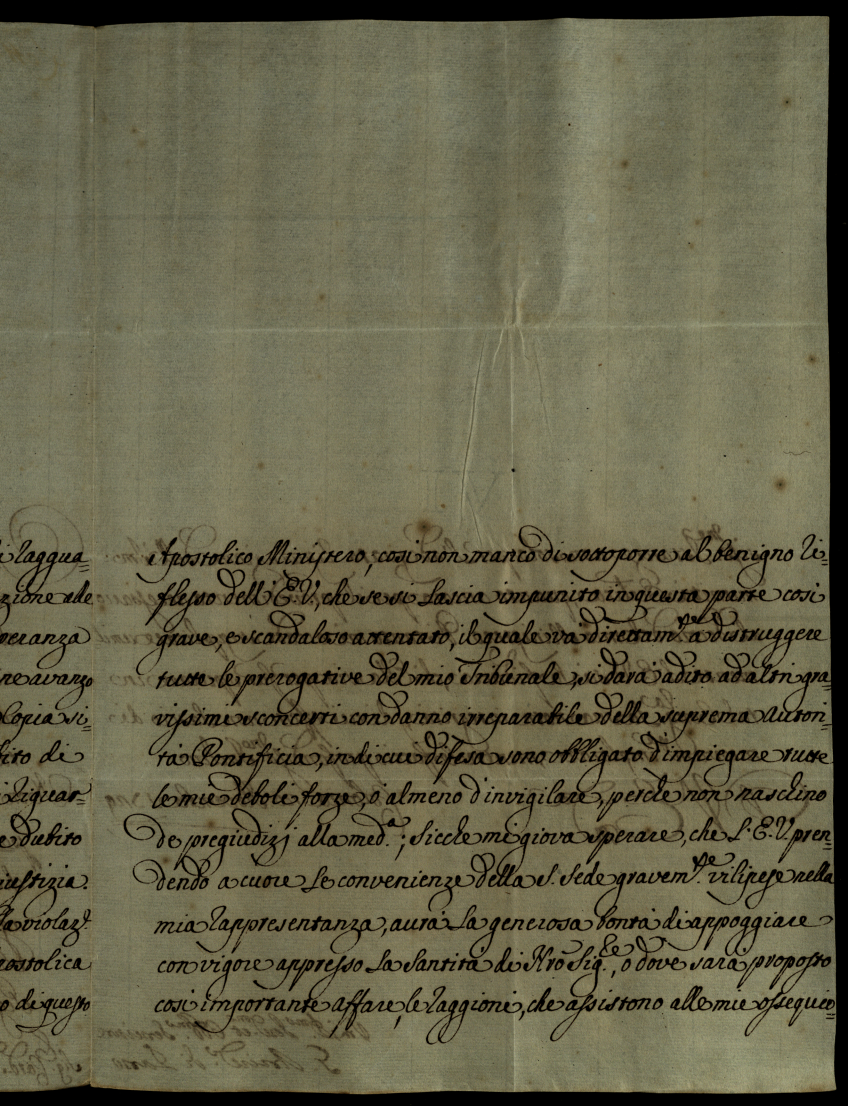 i raggua=
zione ade
peranza
ne avanzo
Copia si=
ito di
i riguar=
e dubito
iustizia.
la violaz.e
postolica
o di questo
Apostolico Ministero, così non manco di sottoporre al benigno ri=
flesso dell'E.V., che se si lascia impunito in questa parte così
grave, e scandaloso attentato, il quale và direttam.te a distruggere
tutte le prerogative del mio Tribunale, si darà adito ad altri gra=
vissimi sconcerti con danno irreparabile della suprema Autori=
tà Pontificia, in di cui difesa sono obbligato d'impiegare tutte
le mie deboli forze, o almeno d'invigilare, perche non naschino
de pregiudizj alla med.a; Sicche mi giova sperare, che l'E.V. pren=
dendo a cuore le convenienze della S. Sede gravem.te vilipese nella
mia rappresentanza, aurà la generosa bontà di appoggiare
con vigore appresso la Santità di Nr̃o Sig.re, o dove sarà proposto
così importante affare, le raggioni, che assistono alle mie ossequio=